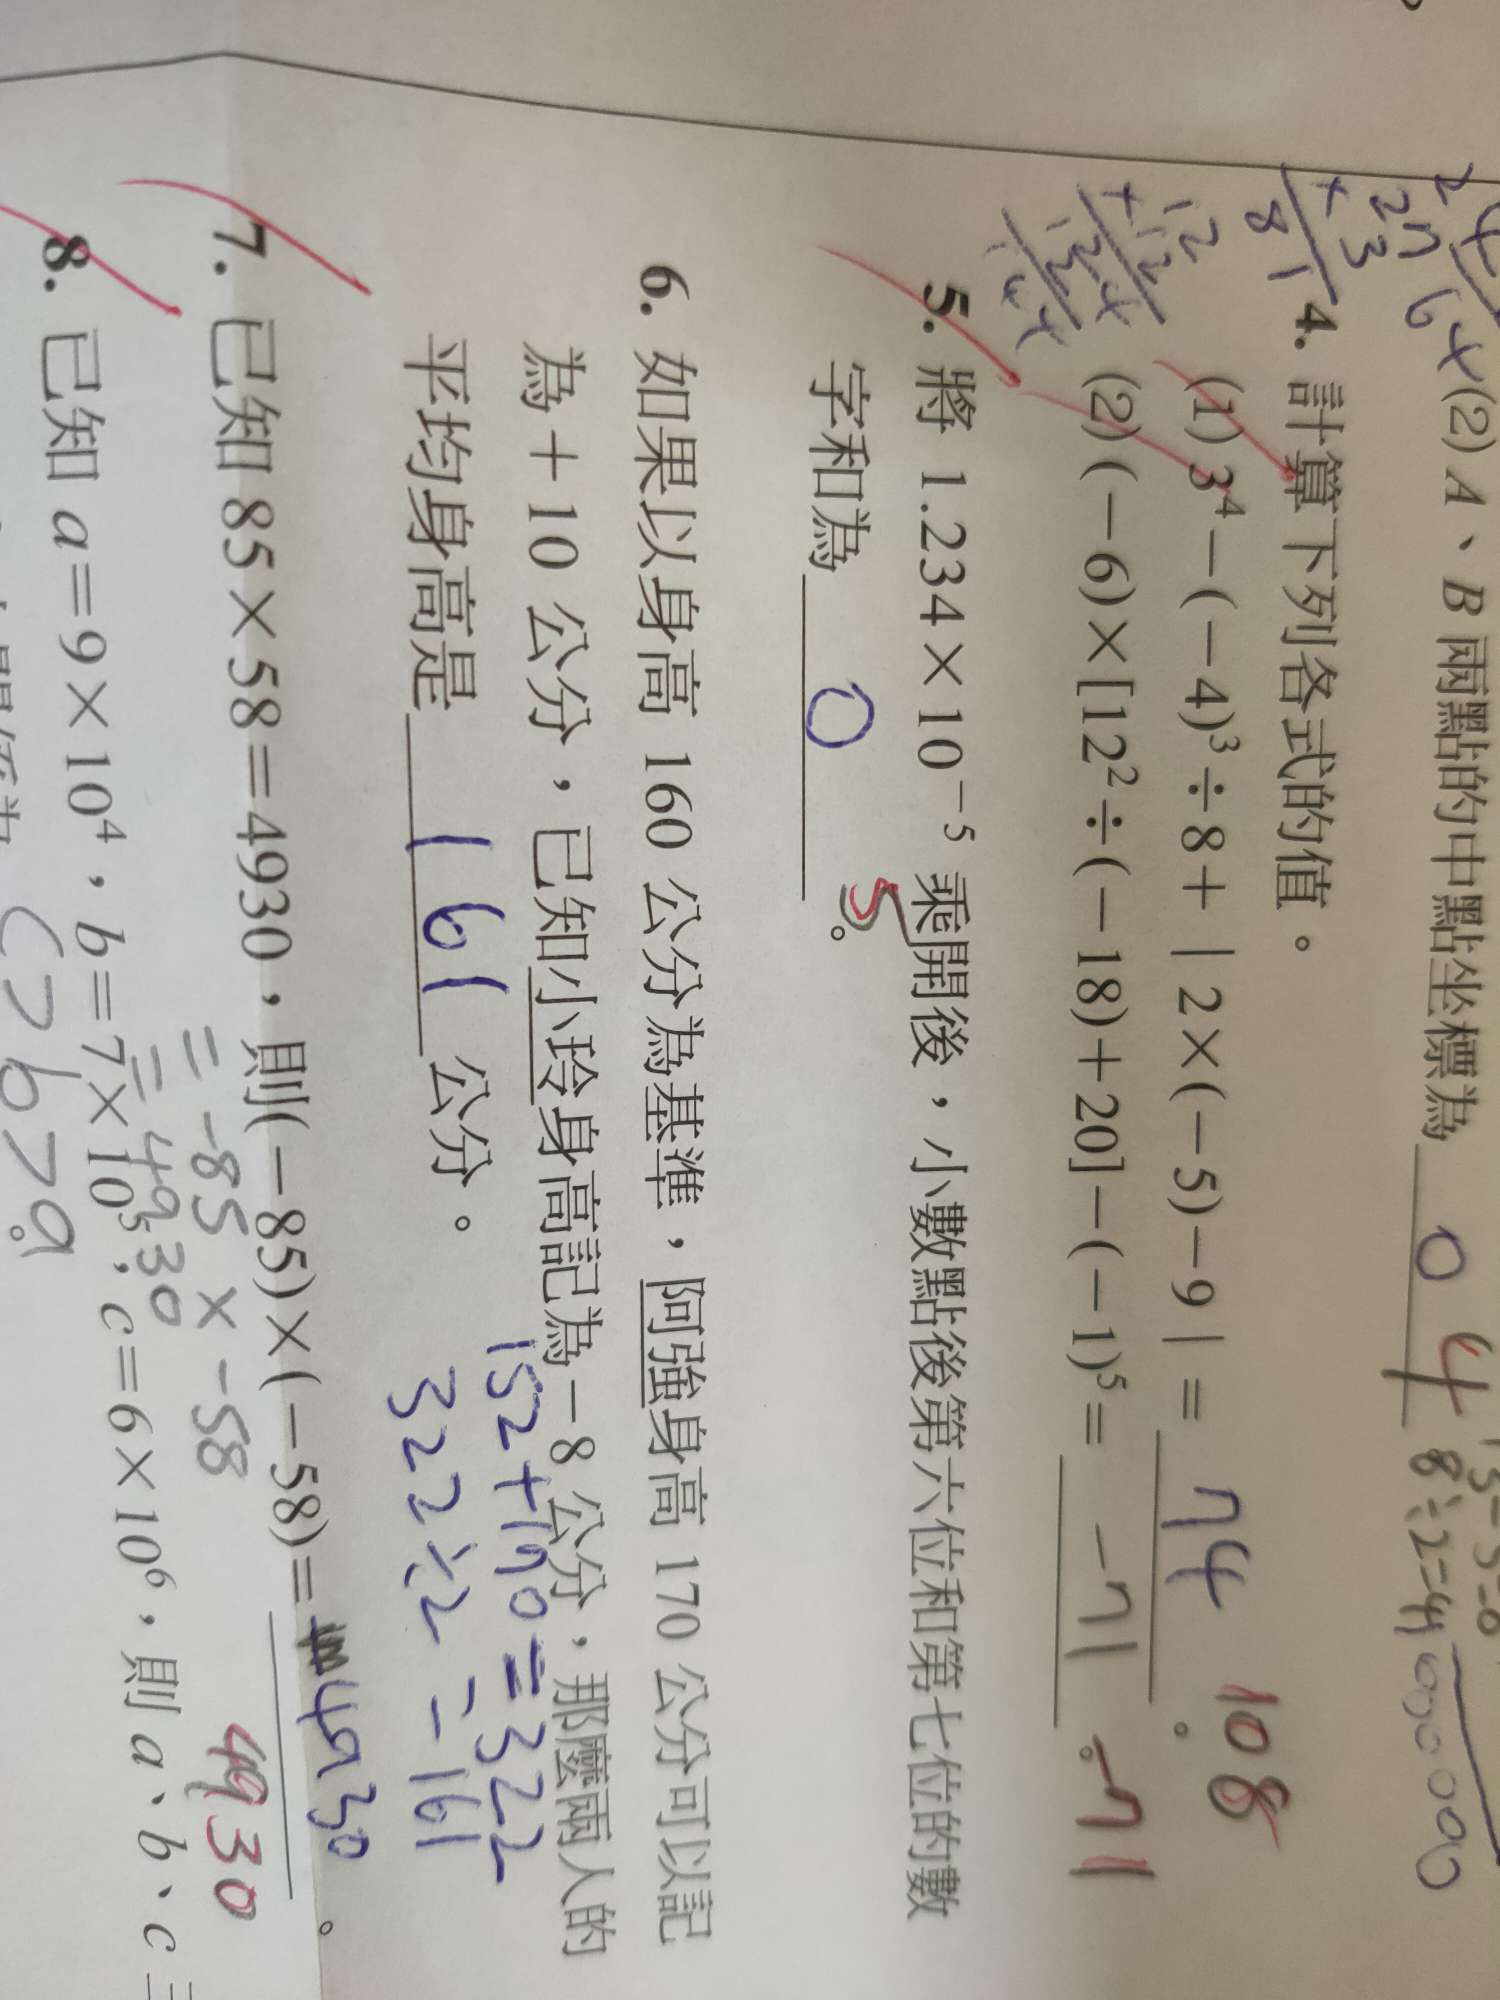 (2) A、B 兩點的中點坐標為 0 4
8÷2=4
27
×3
81
64
4. 計算下列各式的值。
(1) 3⁴-(-4)³÷8+|2×(-5)-9|= 74 。 108
12
×12
24
12
144
(2) (-6)×[12²÷(-18)+20]-(-1)⁵= -71 。 -71
5. 將 1.234×10⁻⁵ 乘開後,小數點後第六位和第七位的數
字和為 0 。 5
6. 如果以身高 160 公分為基準,阿強身高 170 公分可以記
為+10 公分,已知小玲身高記為-8 公分,那麼兩人的
平均身高是 161 公分。
152+170=322
322÷2=161
7. 已知 85×58=4930,則(-85)×(-58)= 4930 。
=-85×-58 4930
=4930
8. 已知 a=9×10⁴,b=7×10⁵,c=6×10⁶,則 a、b、c 三
c>b>a